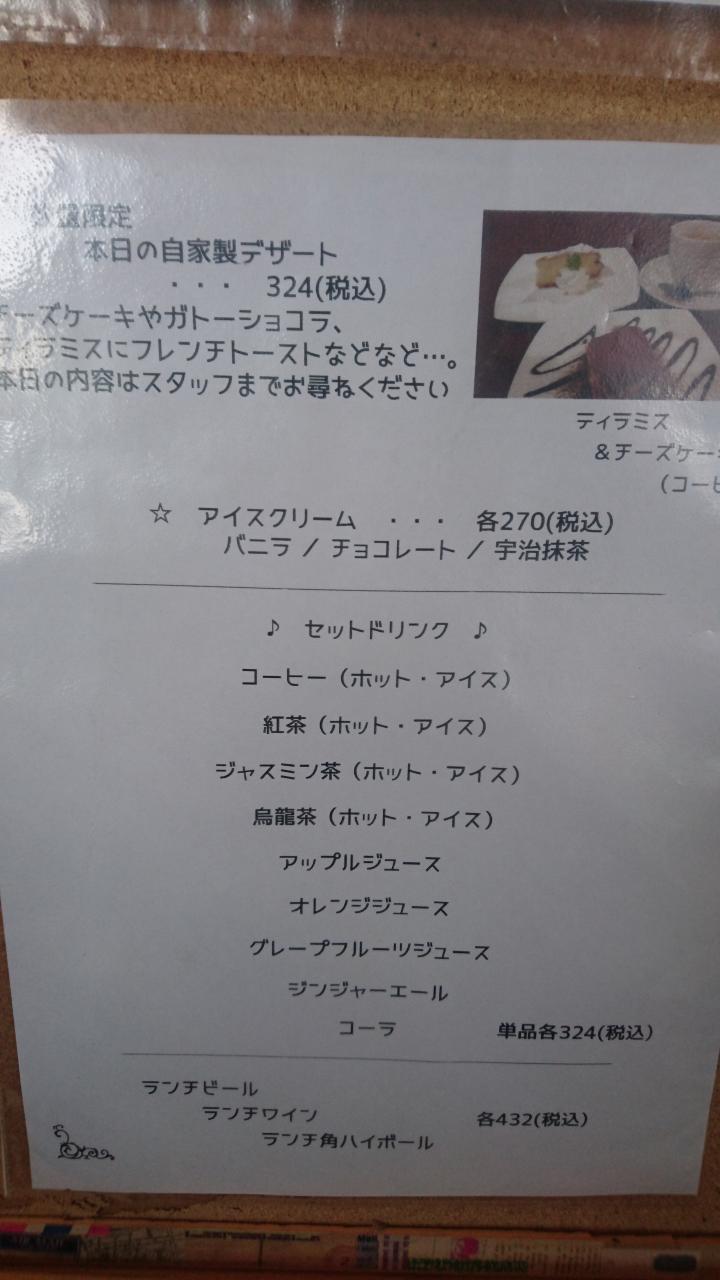 限定
本日の自家製デザート
・・・ 324(税込)
チーズケーキやガトーショコラ、
ティラミスにフレンチトーストなどなど…。
本日の内容はスタッフまでお尋ねください
ティラミス
＆チーズケーキ
(コーヒ
☆ アイスクリーム ・・・ 各270(税込)
バニラ / チョコレート / 宇治抹茶
♪ セットドリンク ♪
コーヒー（ホット・アイス）
紅茶（ホット・アイス）
ジャスミン茶（ホット・アイス）
烏龍茶（ホット・アイス）
アップルジュース
オレンジジュース
グレープフルーツジュース
ジンジャーエール
コーラ 単品各324(税込)
ランチビール
ランチワイン 各432(税込)
ランチ角ハイボール